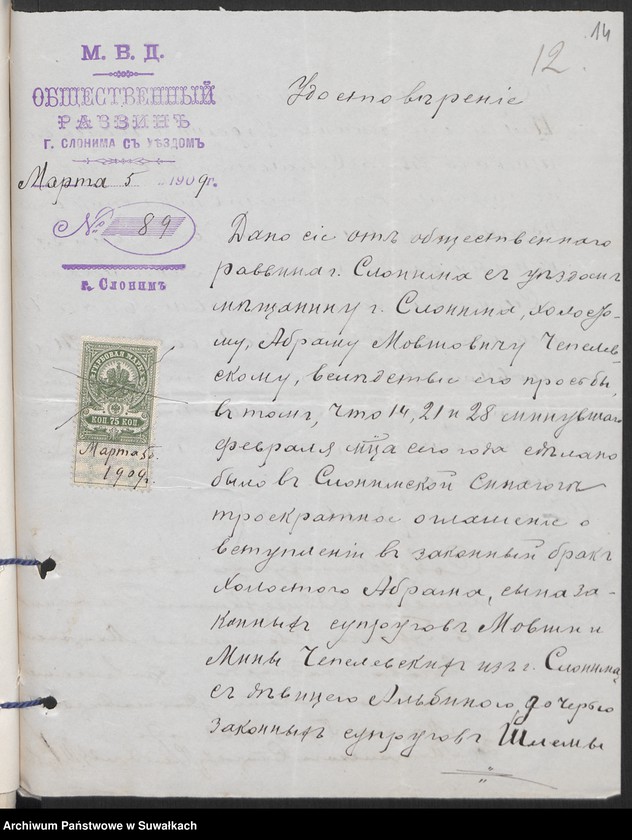 14
12.
М. В. Д.
ОБЩЕСТВЕННЫЙ
РАВВИНЪ
Г. СЛОНИМА СЪ УѢЗДОМЪ
Марта 5 1909 г.
№ 89
г. Слонимъ
Удостовѣреніе
Дано сіе отъ общественнаго
раввина г. Слонима съ уѣздомъ
мѣщанину г. Слонима, холосто-
му, Абраму Мовшовичу Чепелев-
скому, вслѣдствіе его просьбы,
въ томъ, что 14, 21 и 28 минувшаго
февраля м-ца сего года сдѣлано
было въ Слонимской синагогѣ
троекратное оглашеніе о
вступленіи въ законный бракъ
холостого Абрама, сына за-
конныхъ супруговъ Мовши и
Мины Чепелевскихъ изъ г. Слонима,
съ дѣвицею Альбиною, дочерью
законныхъ супруговъ Шлемы
ГЕРБОВАЯ МАРКА
КОП 75 КОП
Марта 5 д.
1909 г.
Archiwum Państwowe w Suwałkach